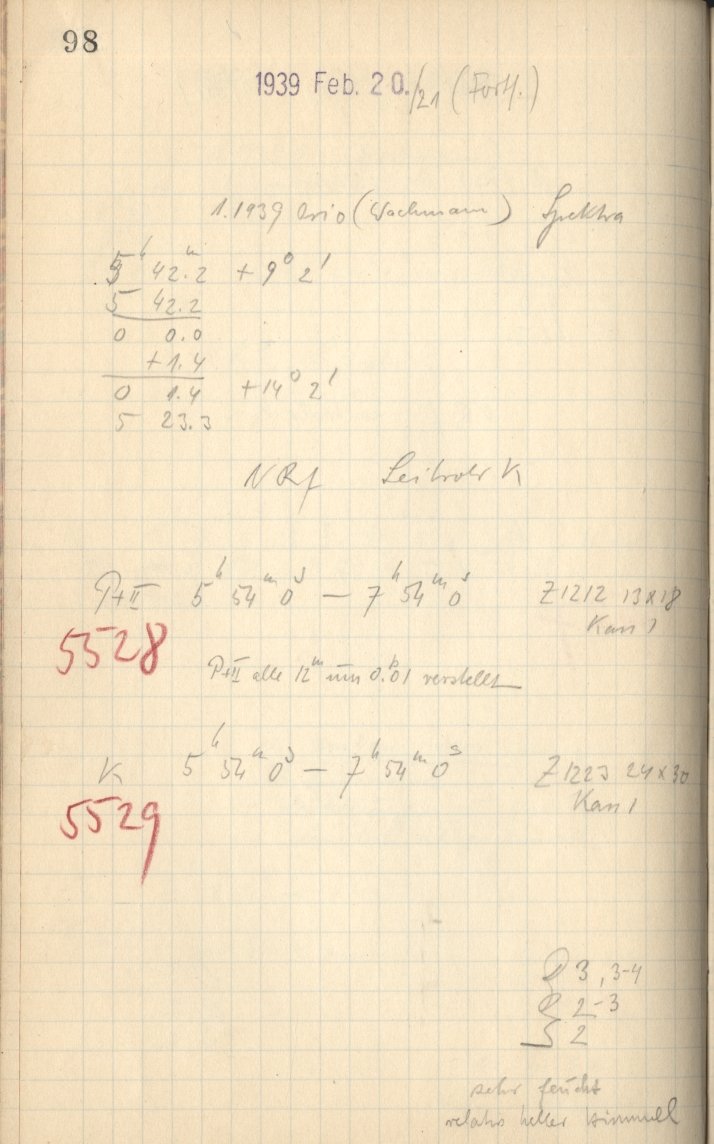 98
1939 Feb. 20./21 (Forts.)
1.1939 Orio (Wachmann) Spektra
5ʰ 42.ᵐ2 + 9° 2'
5 42.2
0 0.0
+1.4
0 1.4 +14° 2'
5 23.3
NRf Leitrohr K
P+II 5ʰ 54ᵐ 0ˢ — 7ʰ 54ᵐ 0ˢ Z1212 13x18
Kass 1
5528
P+II alle 12ᵐ um 0.01 verstellt
K 5ʰ 54ᵐ 0ˢ — 7ʰ 54ᵐ 0ˢ Z1223 24x30
Kass 1
5529
D 3, 3-4
R 2-3
S 2
sehr feucht
relativ heller Himmel